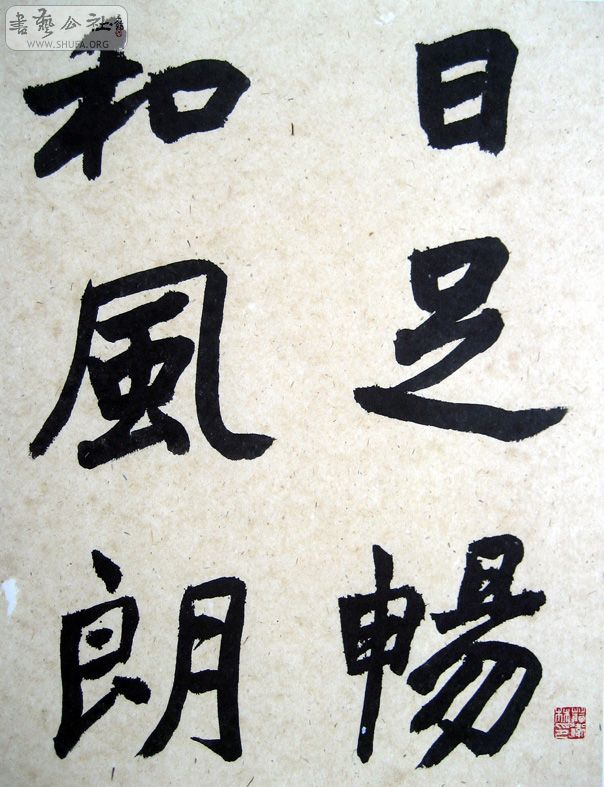 書藝公社
WWW.SHUFA.ORG
日足暢
和風朗